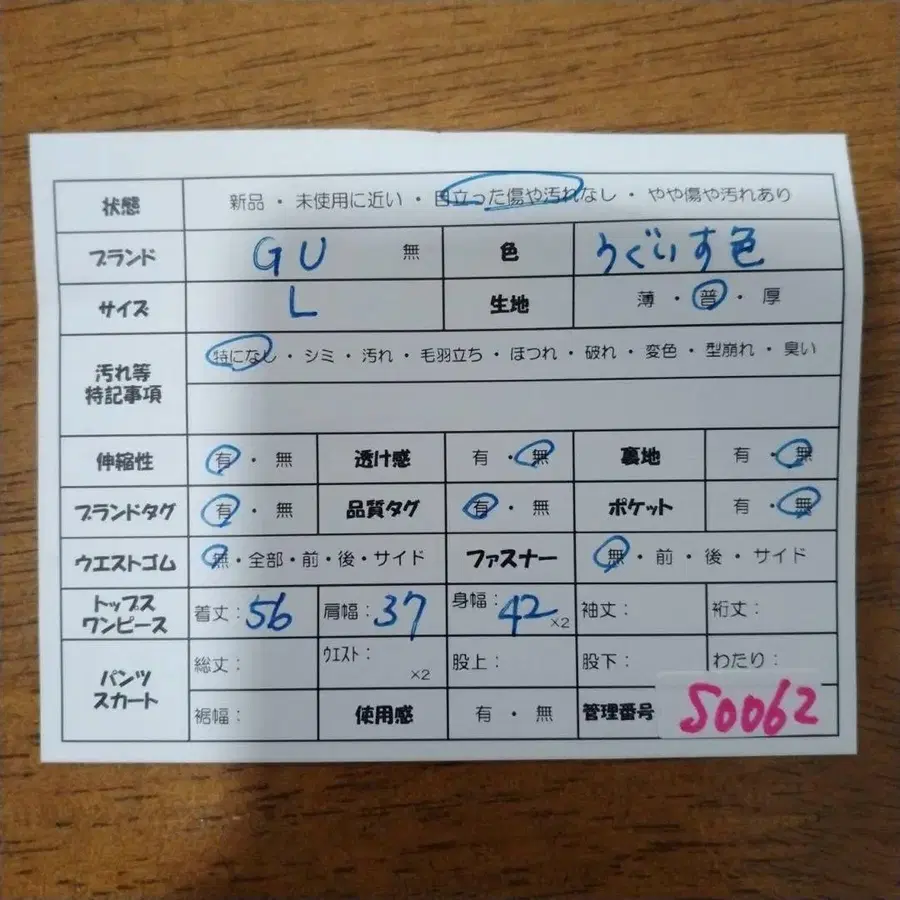 状態 新品・未使用に近い・目立った傷や汚れなし・やや傷や汚れあり
ブランド GU 無 色 うぐいす色
サイズ L 生地 薄・普・厚
汚れ等特記事項 特になし・シミ・汚れ・毛羽立ち・ほつれ・破れ・変色・型崩れ・臭い
伸縮性 有・無 透け感 有・無 裏地 有・無
ブランドタグ 有・無 品質タグ 有・無 ポケット 有・無
ウエストゴム 無・全部・前・後・サイド ファスナー 無・前・後・サイド
トップスワンピース 着丈:56 肩幅:37 身幅:42×2 袖丈: 裄丈:
パンツスカート 総丈: ウエスト: ×2 股上: 股下: わたり:
裾幅: 使用感 有・無 管理番号 S0062